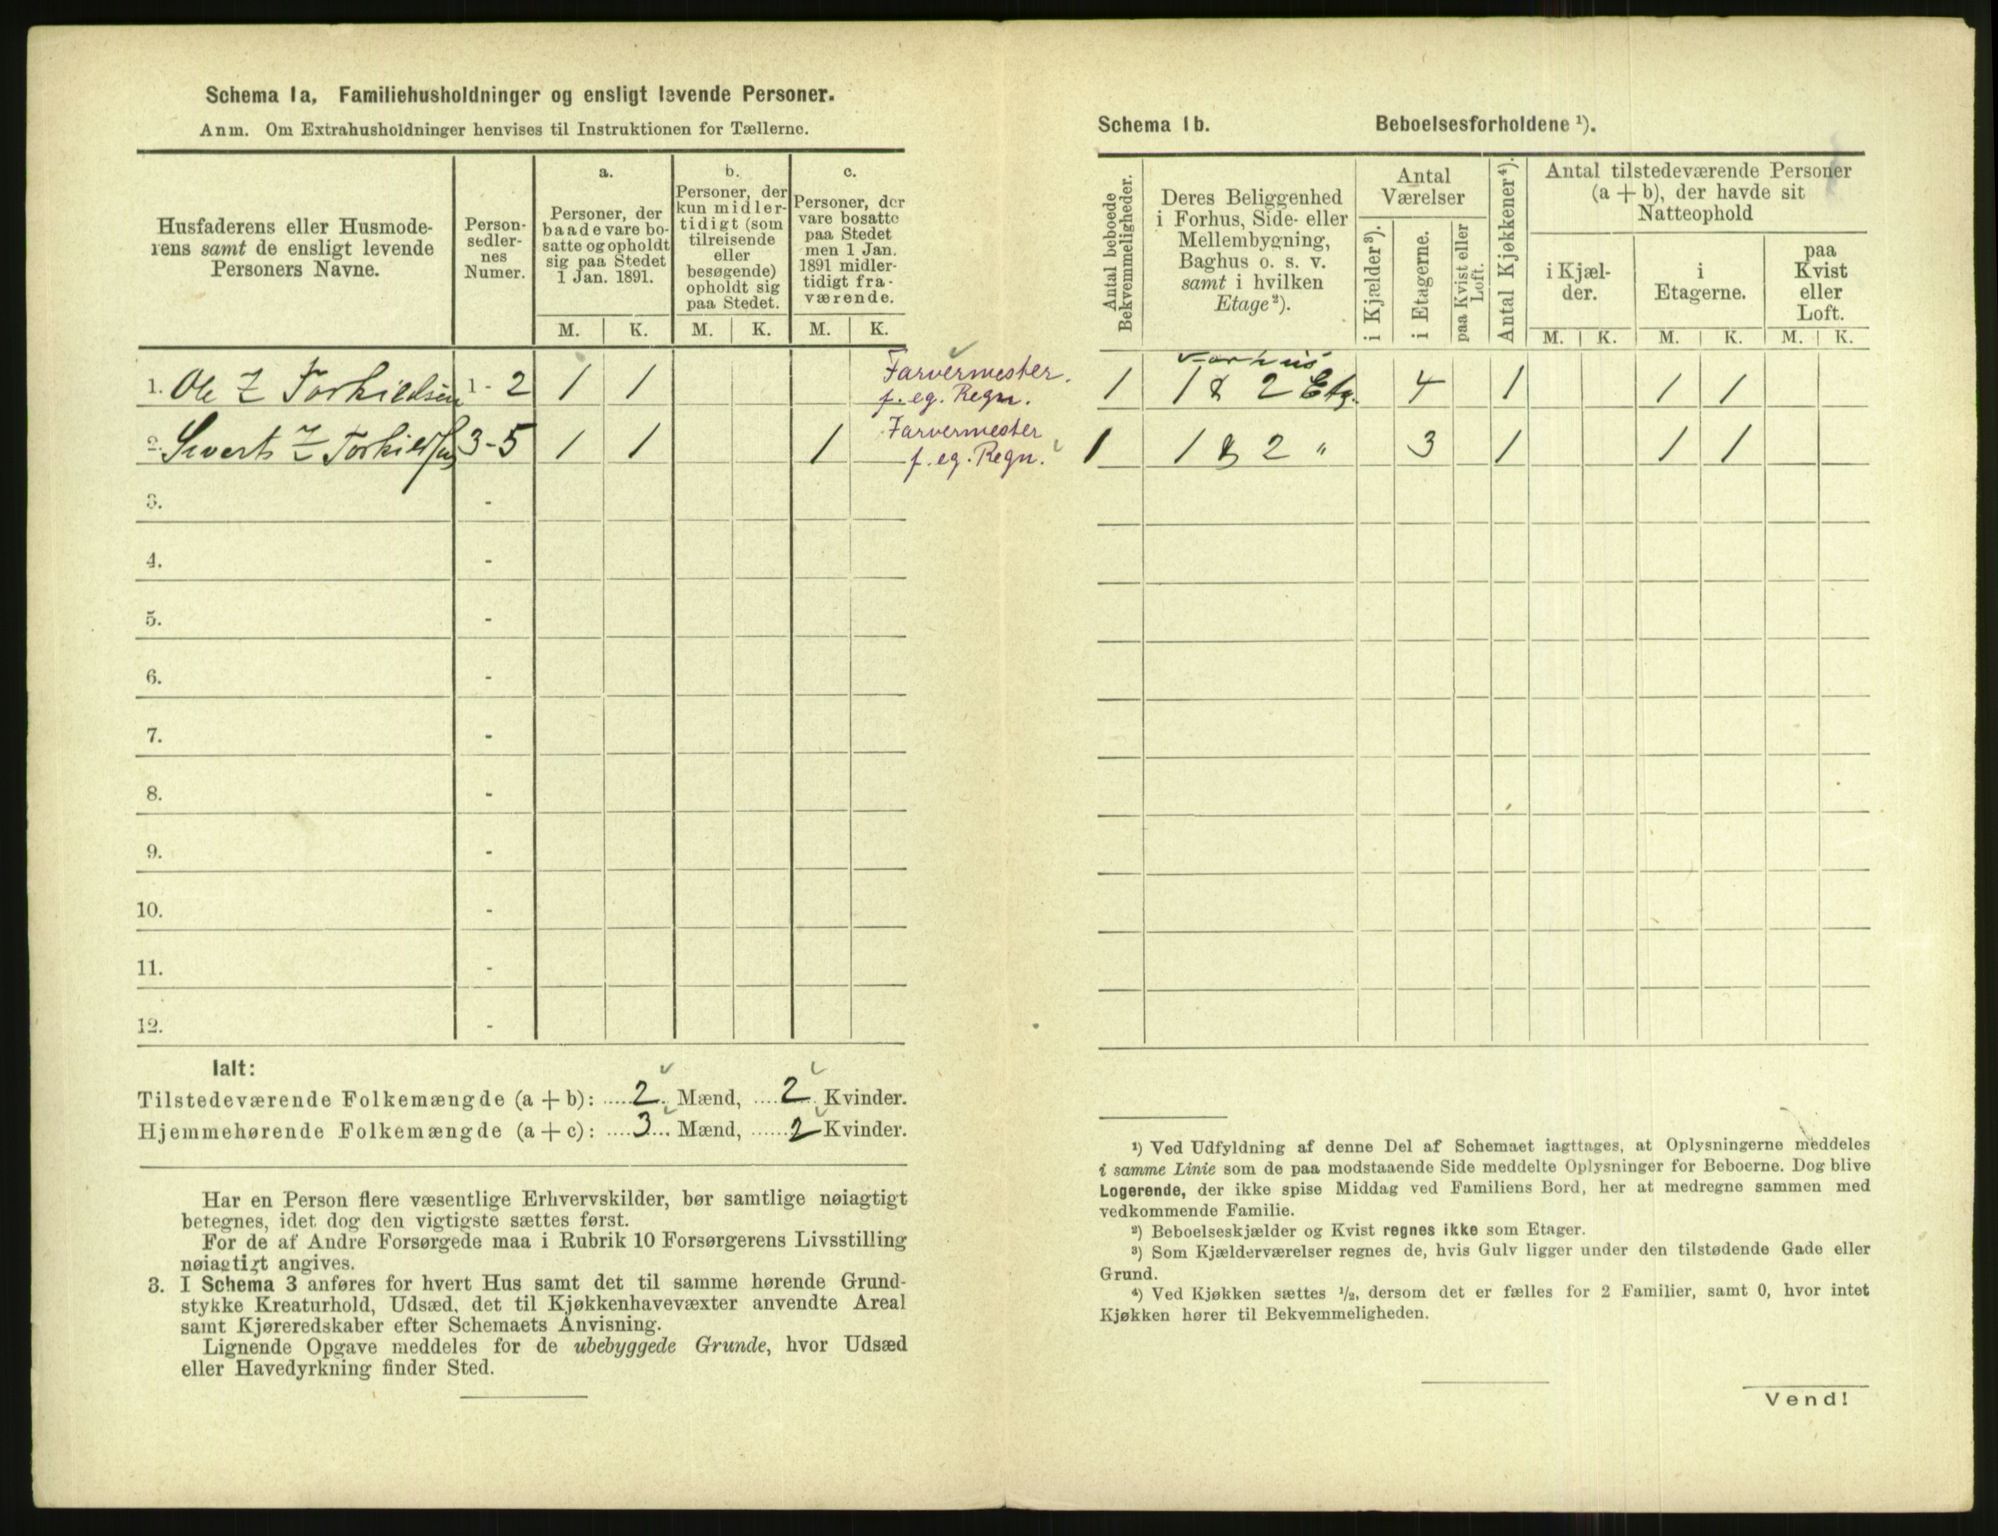 Schema 1a, Familiehusholdninger og ensligt levende Personer.
Anm. Om Extrahusholdninger henvises til Instruktionen for Tællerne.
Husfaderens eller Husmode-
rens samt de ensligt levende
Personers Navne.
Person-
sedler-
nes
Numer.
a.
Personer, der
baade vare bo-
satte og opholdt
sig paa Stedet
1 Jan. 1891.
b.
Personer, der
kun midler-
tidigt (som
tilreisende
eller
besøgende)
opholdt sig
paa Stedet.
c.
Personer, der
vare bosatte
paa Stedet
men 1 Jan.
1891 midler-
tidigt fra-
værende.
M. K. M. K. M. K.
1. Ole Z Torkildsen 1 - 2 1 1 Farvermester
f. eg. Regn.
2. Sivert Z Torkildsen 3 - 5 1 1 1 Farvermester
f. eg. Regn.
3. -
4. -
5. -
6. -
7. -
8. -
9. -
10. -
11. -
12. -
Ialt:
Tilstedeværende Folkemængde (a + b): ....2. Mænd, ....2. Kvinder.
Hjemmehørende Folkemængde (a + c): ....3... Mænd, ......2 Kvinder.
Har en Person flere væsentlige Erhvervskilder, bør samtlige nøiagtigt
betegnes, idet dog den vigtigste sættes først.
For de af Andre Forsørgede maa i Rubrik 10 Forsørgerens Livsstilling
nøiagtigt angives.
3. I Schema 3 anføres for hvert Hus samt det til samme hørende Grund-
stykke Kreaturhold, Udsæd, det til Kjøkkenhavevæxter anvendte Areal
samt Kjøreredskaber efter Schemaets Anvisning.
Lignende Opgave meddeles for de ubebyggede Grunde, hvor Udsæd
eller Havedyrkning finder Sted.
Schema 1b. Beboelsesforholdene ¹).
Antal beboede
Bekvemmeligheder.
Deres Beliggenhed
i Forhus, Side- eller
Mellembygning,
Baghus o. s. v.
samt i hvilken
Etage²).
Antal
Værelser
i Kjælder³).
i Etagerne.
paa Kvist eller
Loft.
Antal Kjøkkener⁴).
Antal tilstedeværende Personer
(a + b), der havde sit
Natteophold
i Kjæl-
der.
i
Etagerne.
paa
Kvist
eller
Loft.
M. K. M. K. M. K.
Vorhus
1 1 & 2 Etg. 4 1 1 1
1 1 & 2 " 3 1 1 1
¹) Ved Udfyldning af denne Del af Schemaet iagttages, at Oplysningerne meddeles
i samme Linie som de paa modstaaende Side meddelte Oplysninger for Beboerne. Dog blive
Logerende, der ikke spise Middag ved Familiens Bord, her at medregne sammen med
vedkommende Familie.
²) Beboelseskjælder og Kvist regnes ikke som Etager.
³) Som Kjælderværelser regnes de, hvis Gulv ligger under den tilstødende Gade eller
Grund.
⁴) Ved Kjøkken sættes ½, dersom det er fælles for 2 Familier, samt 0, hvor intet
Kjøkken hører til Bekvemmeligheden.
Vend!